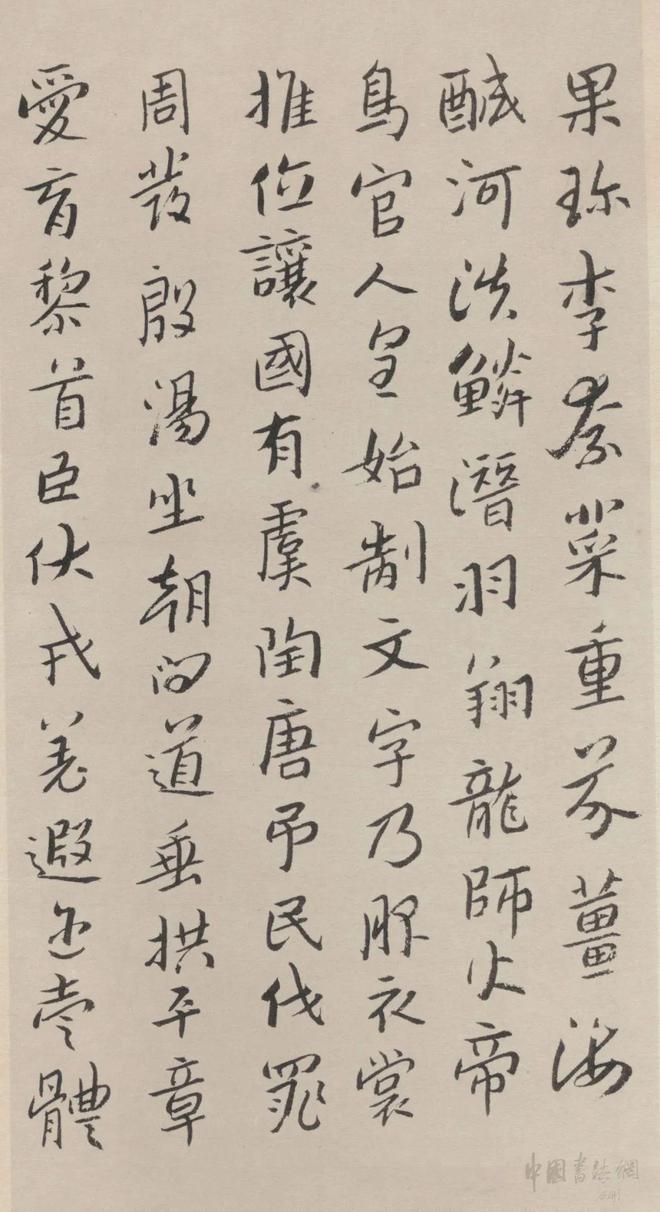 果珎李柰菜重芥薑海
醎河淡鱗潛羽翔龍師火帝
鳥官人皇始制文字乃服衣裳
推位讓國有虞陶唐弔民伐罪
周發殷湯坐朝問道垂拱平章
愛育黎首臣伏戎羌遐迩壹體
中國書法網